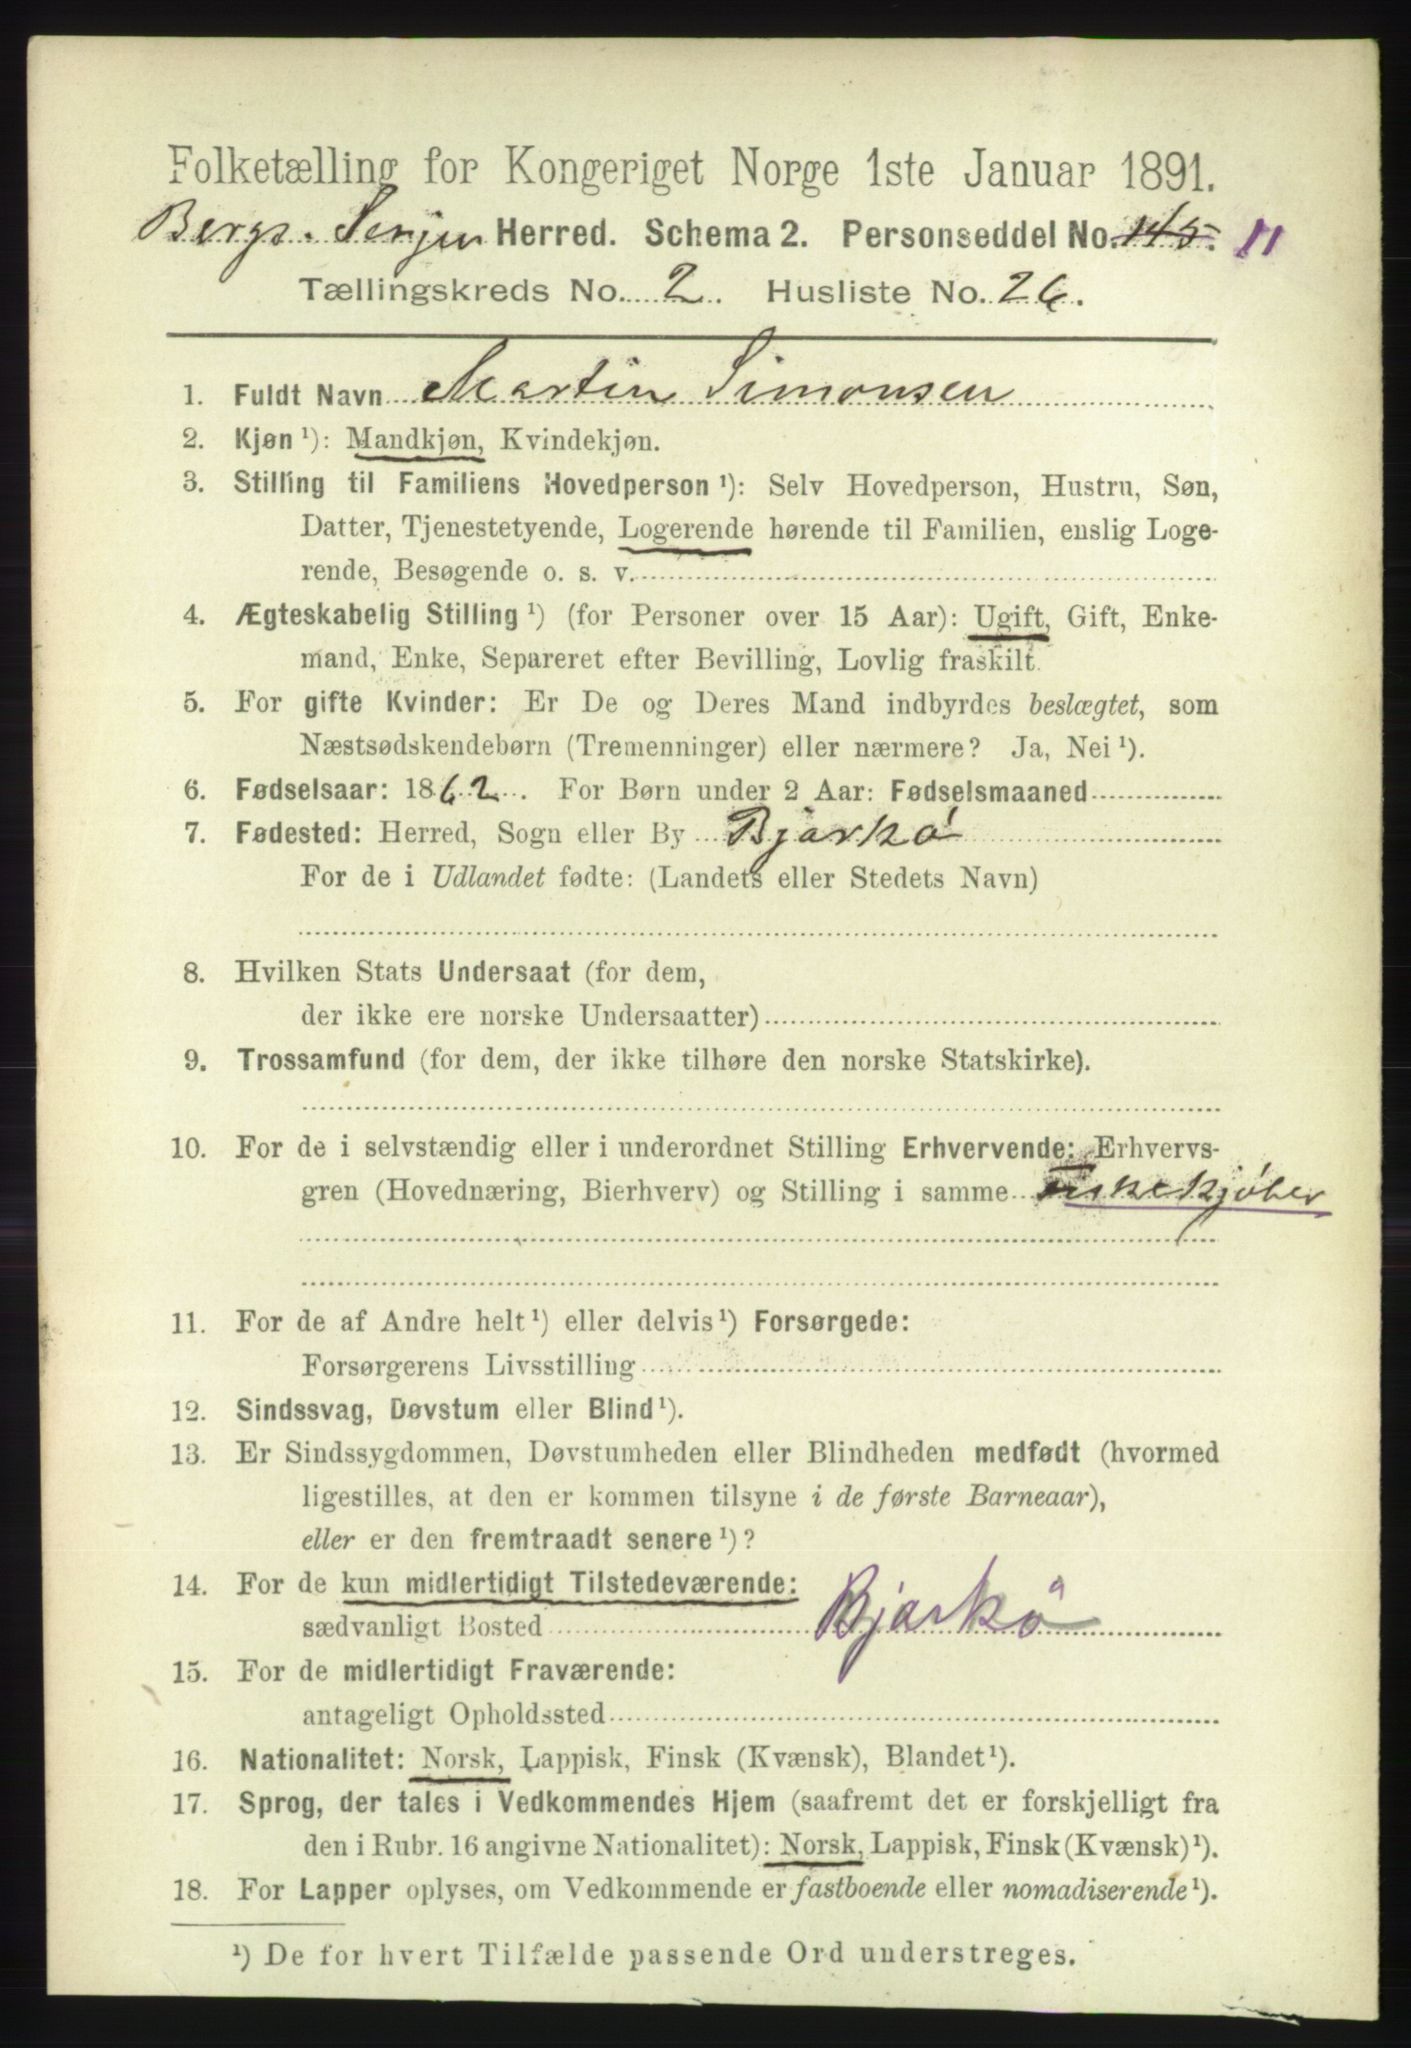 Folketælling for Kongeriget Norge 1ste Januar 1891.
Bergs. Senjen Herred. Schema 2. Personseddel No. 145. 11
Tællingskreds No. 2. Husliste No. 26.
1. Fuldt Navn Martin Simonsen
2. Kjøn ¹): Mandkjøn, Kvindekjøn.
3. Stilling til Familiens Hovedperson ¹): Selv Hovedperson, Hustru, Søn,
Datter, Tjenestetyende, Logerende hørende til Familien, enslig Loge-
rende, Besøgende o. s. v.
4. Ægteskabelig Stilling ¹) (for Personer over 15 Aar): Ugift, Gift, Enke-
mand, Enke, Separeret efter Bevilling, Lovlig fraskilt.
5. For gifte Kvinder: Er De og Deres Mand indbyrdes beslægtet, som
Næstsødskendebørn (Tremenninger) eller nærmere? Ja, Nei ¹).
6. Fødselsaar: 1862. For Børn under 2 Aar: Fødselsmaaned
7. Fødested: Herred, Sogn eller By Bjarkö
For de i Udlandet fødte: (Landets eller Stedets Navn)
8. Hvilken Stats Undersaat (for dem,
der ikke ere norske Undersaatter)
9. Trossamfund (for dem, der ikke tilhøre den norske Statskirke).
10. For de i selvstændig eller i underordnet Stilling Erhvervende: Erhvervs-
gren (Hovednæring, Bierhverv) og Stilling i samme Fiskekjøber
11. For de af Andre helt ¹) eller delvis ¹) Forsørgede:
Forsørgerens Livsstilling
12. Sindssvag, Døvstum eller Blind ¹).
13. Er Sindssygdommen, Døvstumheden eller Blindheden medfødt (hvormed
ligestilles, at den er kommen tilsyne i de første Barneaar),
eller er den fremtraadt senere ¹)?
14. For de kun midlertidigt Tilstedeværende:
sædvanligt Bosted Bjarkö
15. For de midlertidigt Fraværende:
antageligt Opholdssted
16. Nationalitet: Norsk, Lappisk, Finsk (Kvænsk), Blandet ¹).
17. Sprog, der tales i Vedkommendes Hjem (saafremt det er forskjelligt fra
den i Rubr. 16 angivne Nationalitet): Norsk, Lappisk, Finsk (Kvænsk) ¹).
18. For Lapper oplyses, om Vedkommende er fastboende eller nomadiserende ¹).
¹) De for hvert Tilfælde passende Ord understreges.